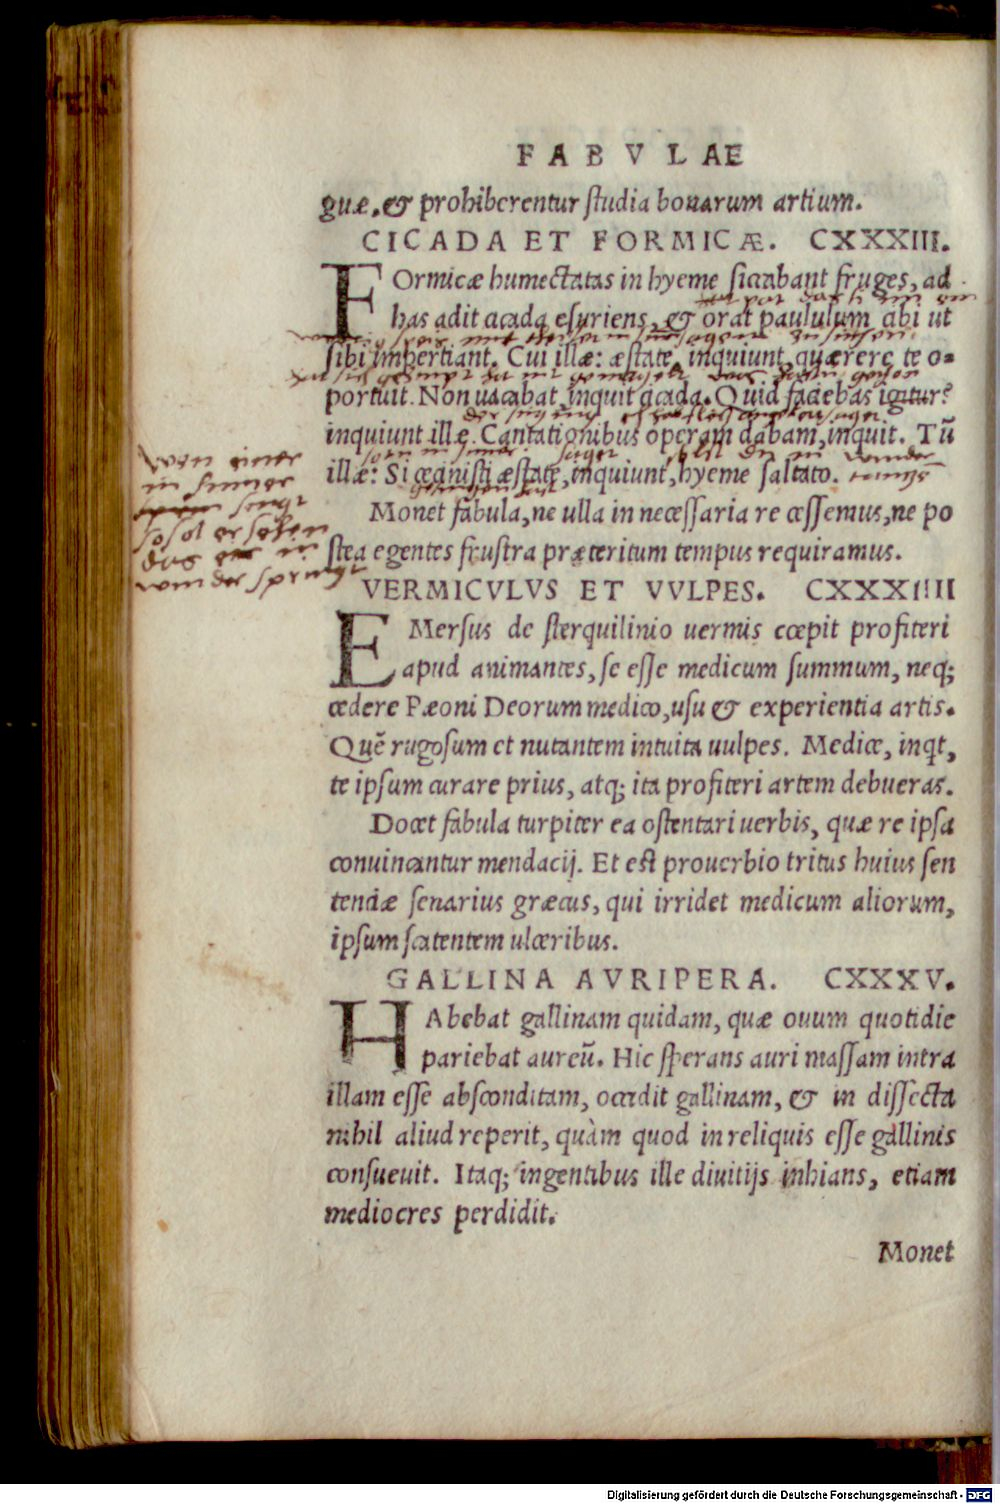 FABVLAE
guæ, & prohiberentur ſtudia bonarum artium.
CICADA ET FORMICÆ. CXXXIII.
FOrmicæ humectatas in hyeme ſiccabant fruges, ad
has adit cicada eſuriens, & orat paululum cibi ut
ſibi impertiant. Cui illæ: æſtate, inquiunt, quærere te o-
portuit. Non uacabat, inquit cicada. Quid faciebas igitur?
inquiunt illæ. Cantationibus operam dabam, inquit. Tũ
illæ: Si cecinisti æſtate, inquiunt, hyeme ſaltato.
Monet fabula, ne ulla in neceſſaria re ceſſemus, ne po
ſtea egentes fruſtra præteritum tempus requiramus.
Wan einer
in summer
singt
so sol er
das
VERMICVLVS ET VVLPES. CXXXIIII
EMerſus de ſterquilinio uermis cœpit profiteri
apud animantes, ſe eſſe medicum ſummum, neq;
cedere Pæoni Deorum medico, uſu & experientia artis.
Quẽ rugoſum et nutantem intuita uulpes. Medice, inqt,
te ipſum curare prius, atq; ita profiteri artem debueras.
Docet fabula turpiter ea oſtentari uerbis, quæ re ipſa
conuincantur mendacij. Et eſt prouerbio tritus huius ſen
tentiæ ſenarius græcus, qui irridet medicum aliorum,
ipſum ſcatentem ulceribus.
GALLINA AVRIPERA. CXXXV.
HAbebat gallinam quidam, quæ ouum quotidie
pariebat aureũ. Hic ſperans auri maſſam intra
illam eſſe abſconditam, occidit gallinam, & in diſſecta
nihil aliud reperit, quàm quod in reliquis eſſe gallinis
conſueuit. Itaq; ingentibus ille diuitijs inhians, etiam
mediocres perdidit.
Monet
Digitalisierung gefördert durch die Deutsche Forschungsgemeinschaft - DFG